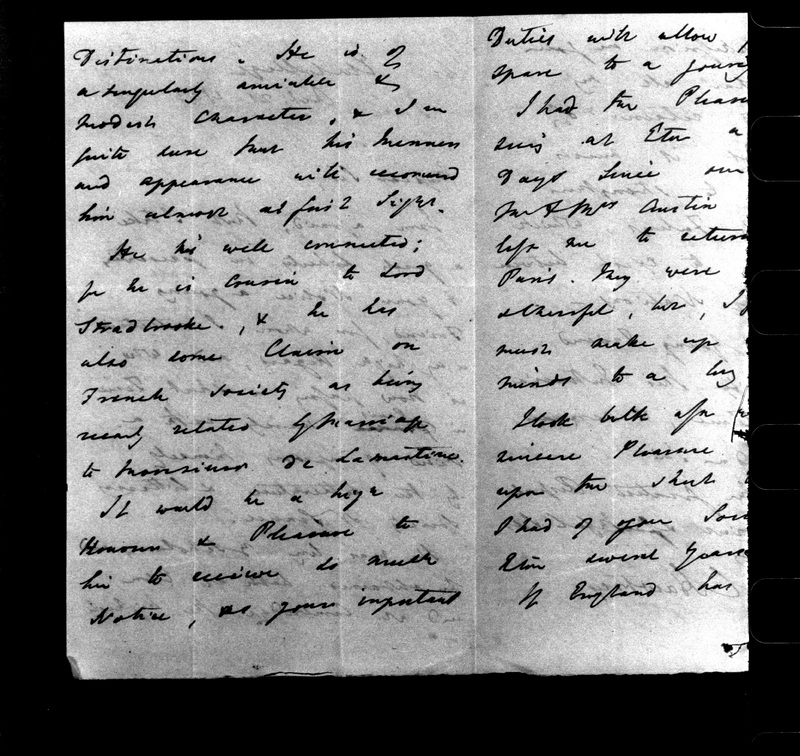 Distinations. He is of
a singularly amiable &
modest Character, & I am
quite sure that his manners
and appearance will recommend
him almost at first Sight.
He his well connected;
for he is Cousin to Lord
Stradbrooke, & he has
also some Claim on
French Society as being
nearly related by Marriage
to Monsieur de Lamartine.
It would be a high
Honour & Pleasure to
him to receive so much
Notice, as your important
Duties will allow
spare to a young
I had the Pleas
seeing at Eton a
Days since our
Mr & Mrs Austin
left me to return
Paris. They were
cheerful, but, I f
must make up
minds to a long
I look back
sincere Pleasure
upon the short
I had of your Soci
Eton several Years
If England has